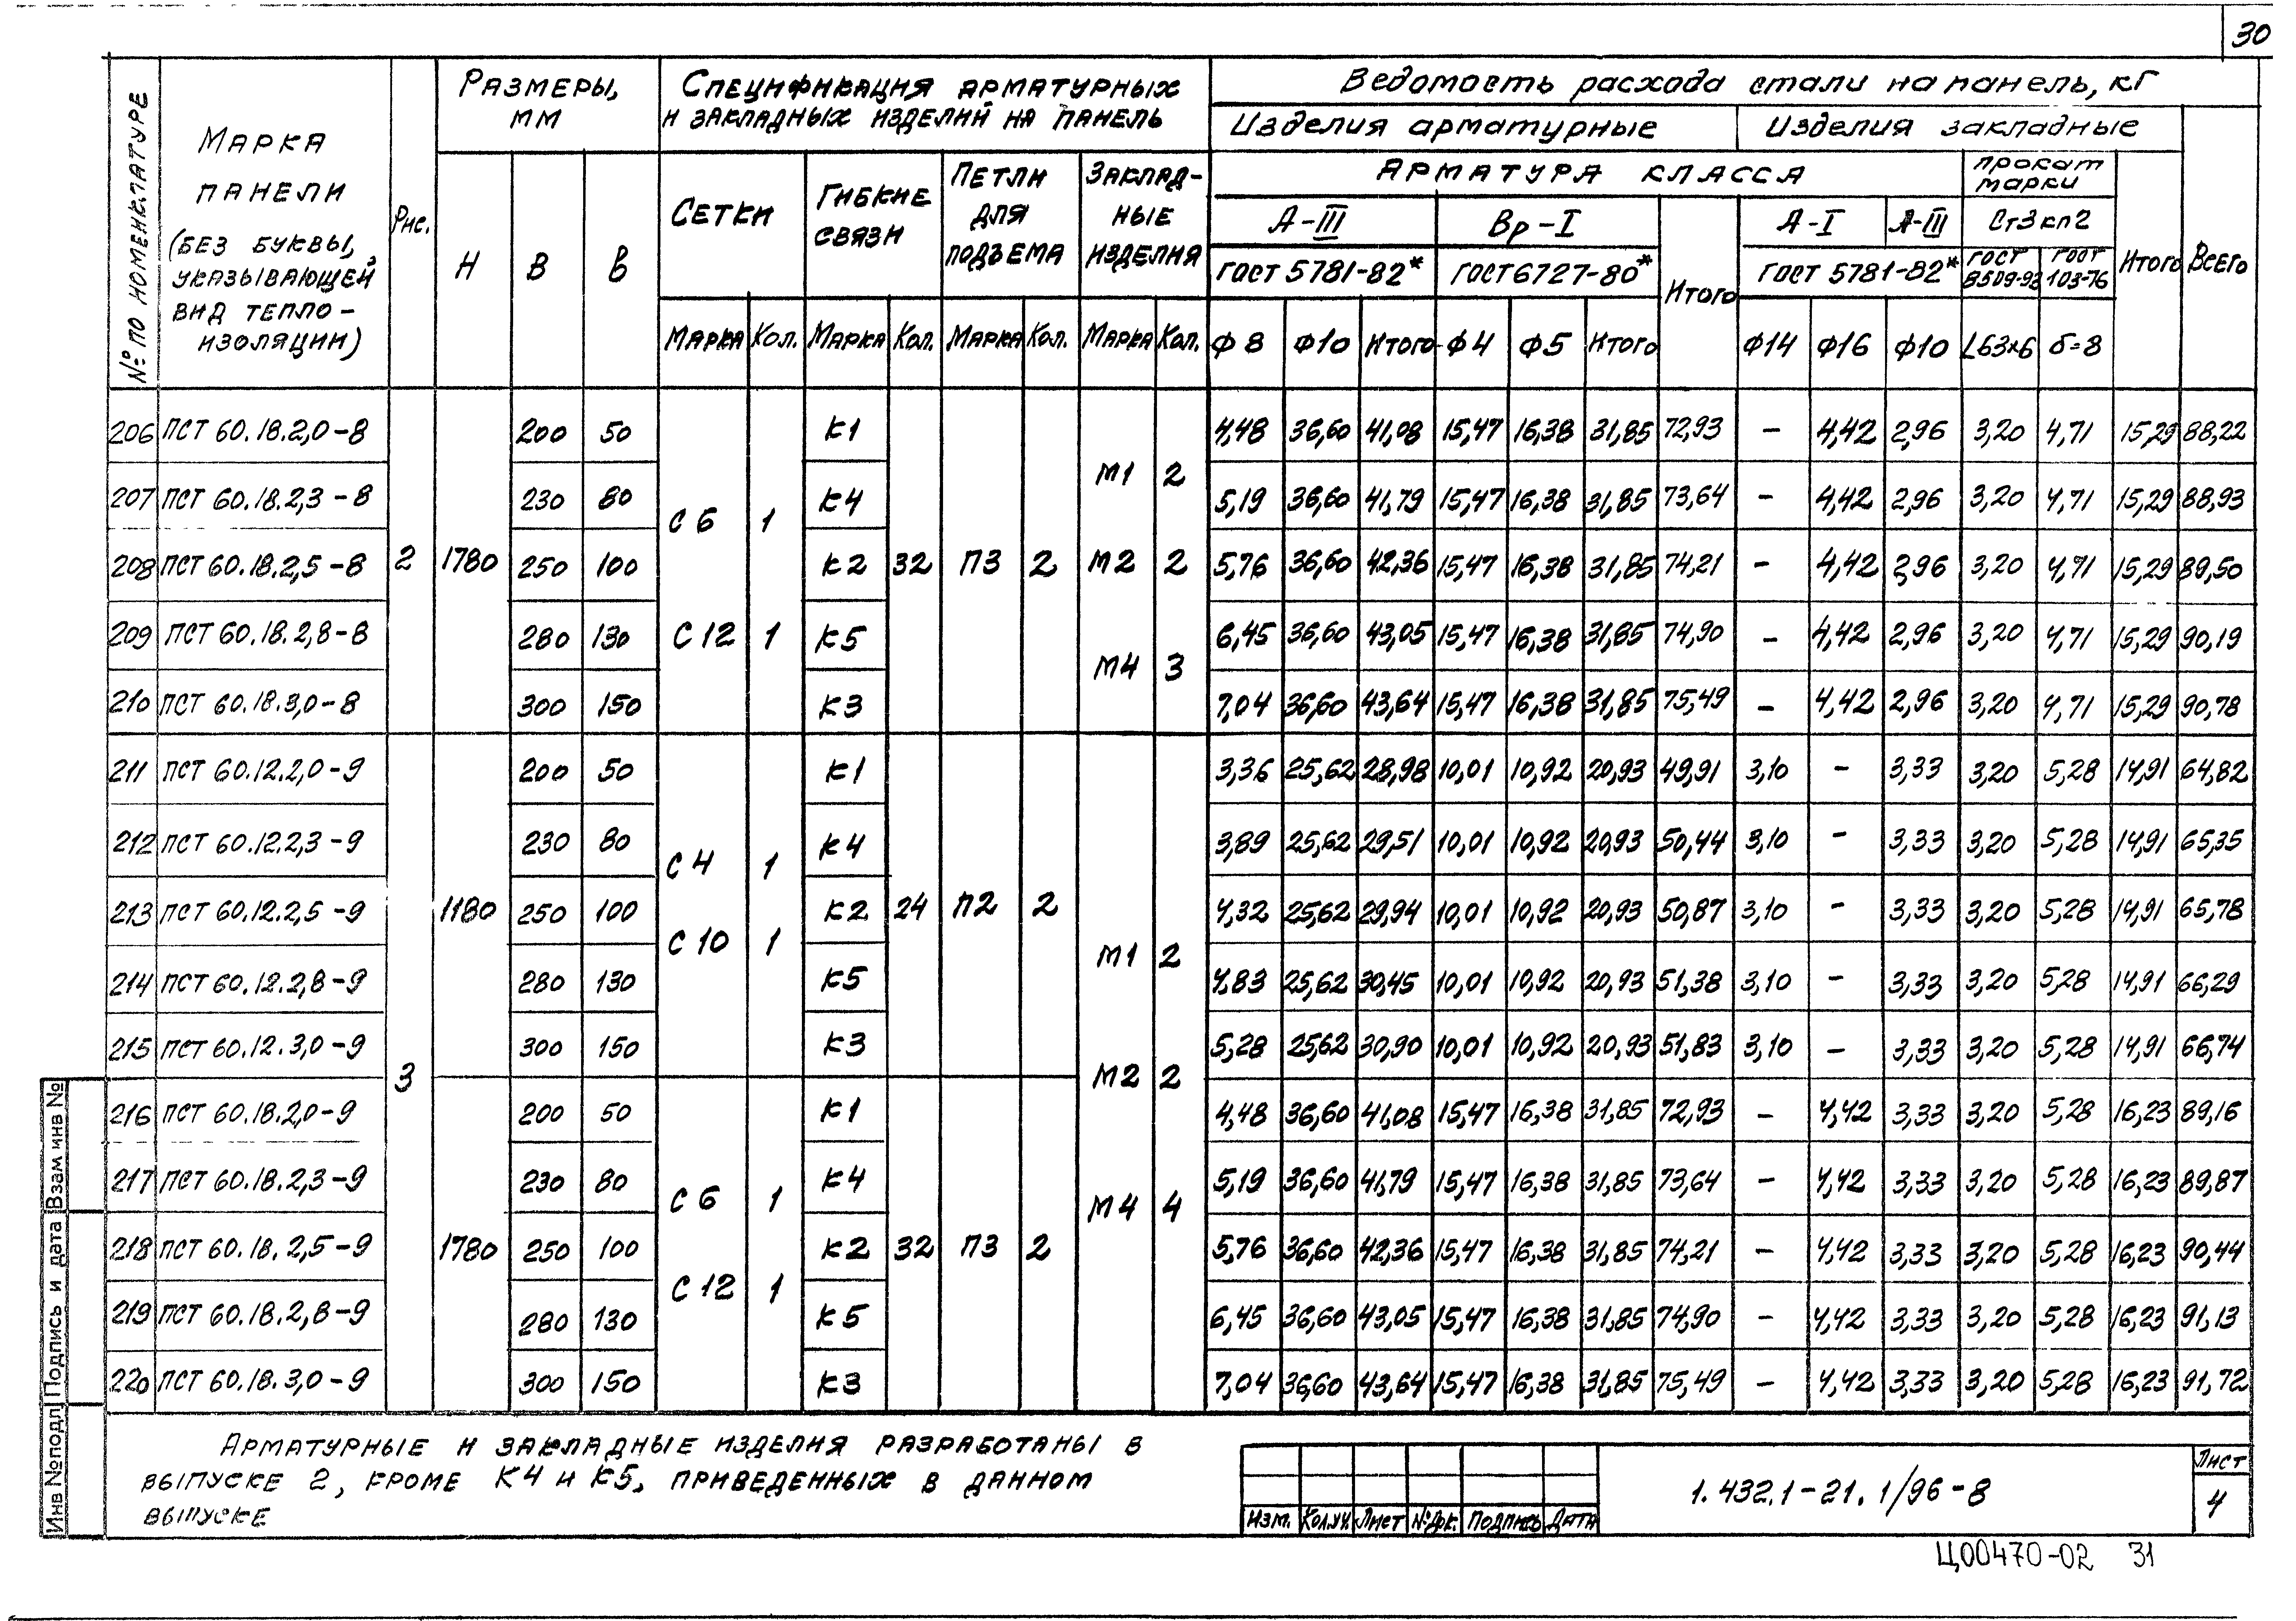 30
№ ПО НОМЕНКЛАТУРЕ
МАРКА ПАНЕЛИ (БЕЗ БУКВЫ, УКАЗЫВАЮЩЕЙ ВИД ТЕПЛО-ИЗОЛЯЦИИ)
Рис.
РАЗМЕРЫ, ММ
H B в
СПЕЦИФИКАЦИЯ АРМАТУРНЫХ И ЗАКЛАДНЫХ ИЗДЕЛИЙ НА ПАНЕЛЬ
СЕТКИ ГИБКИЕ СВЯЗИ ПЕТЛИ ДЛЯ ПОДЪЕМА ЗАКЛАД-НЫЕ ИЗДЕЛИЯ
МАРКА КОЛ. МАРКА КОЛ. МАРКА КОЛ. МАРКА КОЛ.
Ведомость расхода стали на панель, кг
Изделия арматурные Изделия закладные
АРМАТУРА КЛАССА прокат марки
А-III Вр-I Итого А-I А-III Ст3кп2 Итого Всего
ГОСТ 5781-82* ГОСТ 6727-80* ГОСТ 5781-82* ГОСТ 8509-93 ГОСТ 103-76
Ф8 Ф10 Итого Ф4 Ф5 Итого Ф14 Ф16 Ф10 L63x6 б=8
206 ПСТ 60.18.2,0-8 200 50 К1 4,48 36,60 41,08 15,47 16,38 31,85 72,93 – 4,42 2,96 3,20 4,71 15,29 88,22
М1 2
207 ПСТ 60.18.2,3-8 230 80 К4 5,19 36,60 41,79 15,47 16,38 31,85 73,64 – 4,42 2,96 3,20 4,71 15,29 88,93
С6 1
208 ПСТ 60.18.2,5-8 2 1780 250 100 К2 32 П3 2 М2 2 5,76 36,60 42,36 15,47 16,38 31,85 74,21 – 4,42 2,96 3,20 4,71 15,29 89,50
209 ПСТ 60.18.2,8-8 280 130 С12 1 К5 6,45 36,60 43,05 15,47 16,38 31,85 74,90 – 4,42 2,96 3,20 4,71 15,29 90,19
М4 3
210 ПСТ 60.18.3,0-8 300 150 К3 7,04 36,60 43,64 15,47 16,38 31,85 75,49 – 4,42 2,96 3,20 4,71 15,29 90,78
211 ПСТ 60.12.2,0-9 200 50 К1 3,36 25,62 28,98 10,01 10,92 20,93 49,91 3,10 – 3,33 3,20 5,28 14,91 64,82
212 ПСТ 60.12.2,3-9 230 80 К4 3,89 25,62 29,51 10,01 10,92 20,93 50,44 3,10 – 3,33 3,20 5,28 14,91 65,35
С4 1
213 ПСТ 60.12.2,5-9 1180 250 100 К2 24 П2 2 4,32 25,62 29,94 10,01 10,92 20,93 50,87 3,10 – 3,33 3,20 5,28 14,91 65,78
С10 1 М1 2
214 ПСТ 60.12.2,8-9 280 130 К5 4,83 25,62 30,45 10,01 10,92 20,93 51,38 3,10 – 3,33 3,20 5,28 14,91 66,29
215 ПСТ 60.12.3,0-9 300 150 К3 5,28 25,62 30,90 10,01 10,92 20,93 51,83 3,10 – 3,33 3,20 5,28 14,91 66,74
3 М2 2
216 ПСТ 60.18.2,0-9 200 50 К1 4,48 36,60 41,08 15,47 16,38 31,85 72,93 – 4,42 3,33 3,20 5,28 16,23 89,16
217 ПСТ 60.18.2,3-9 230 80 К4 5,19 36,60 41,79 15,47 16,38 31,85 73,64 – 4,42 3,33 3,20 5,28 16,23 89,87
С6 1 М4 4
218 ПСТ 60.18.2,5-9 1780 250 100 К2 32 П3 2 5,76 36,60 42,36 15,47 16,38 31,85 74,21 – 4,42 3,33 3,20 5,28 16,23 90,44
С12 1
219 ПСТ 60.18.2,8-9 280 130 К5 6,45 36,60 43,05 15,47 16,38 31,85 74,90 – 4,42 3,33 3,20 5,28 16,23 91,13
220 ПСТ 60.18.3,0-9 300 150 К3 7,04 36,60 43,64 15,47 16,38 31,85 75,49 – 4,42 3,33 3,20 5,28 16,23 91,72
АРМАТУРНЫЕ И ЗАКЛАДНЫЕ ИЗДЕЛИЯ РАЗРАБОТАНЫ В
ВЫПУСКЕ 2, КРОМЕ К4 И К5, ПРИВЕДЕННЫХ В ДАННОМ
ВЫПУСКЕ
Взам инв №
Подпись и дата
Инв № подл
Изм. Кол.уч. Лист № док. Подпись Дата
1.432.1-21.1/96-8
Лист
4
Ц00470-02 31